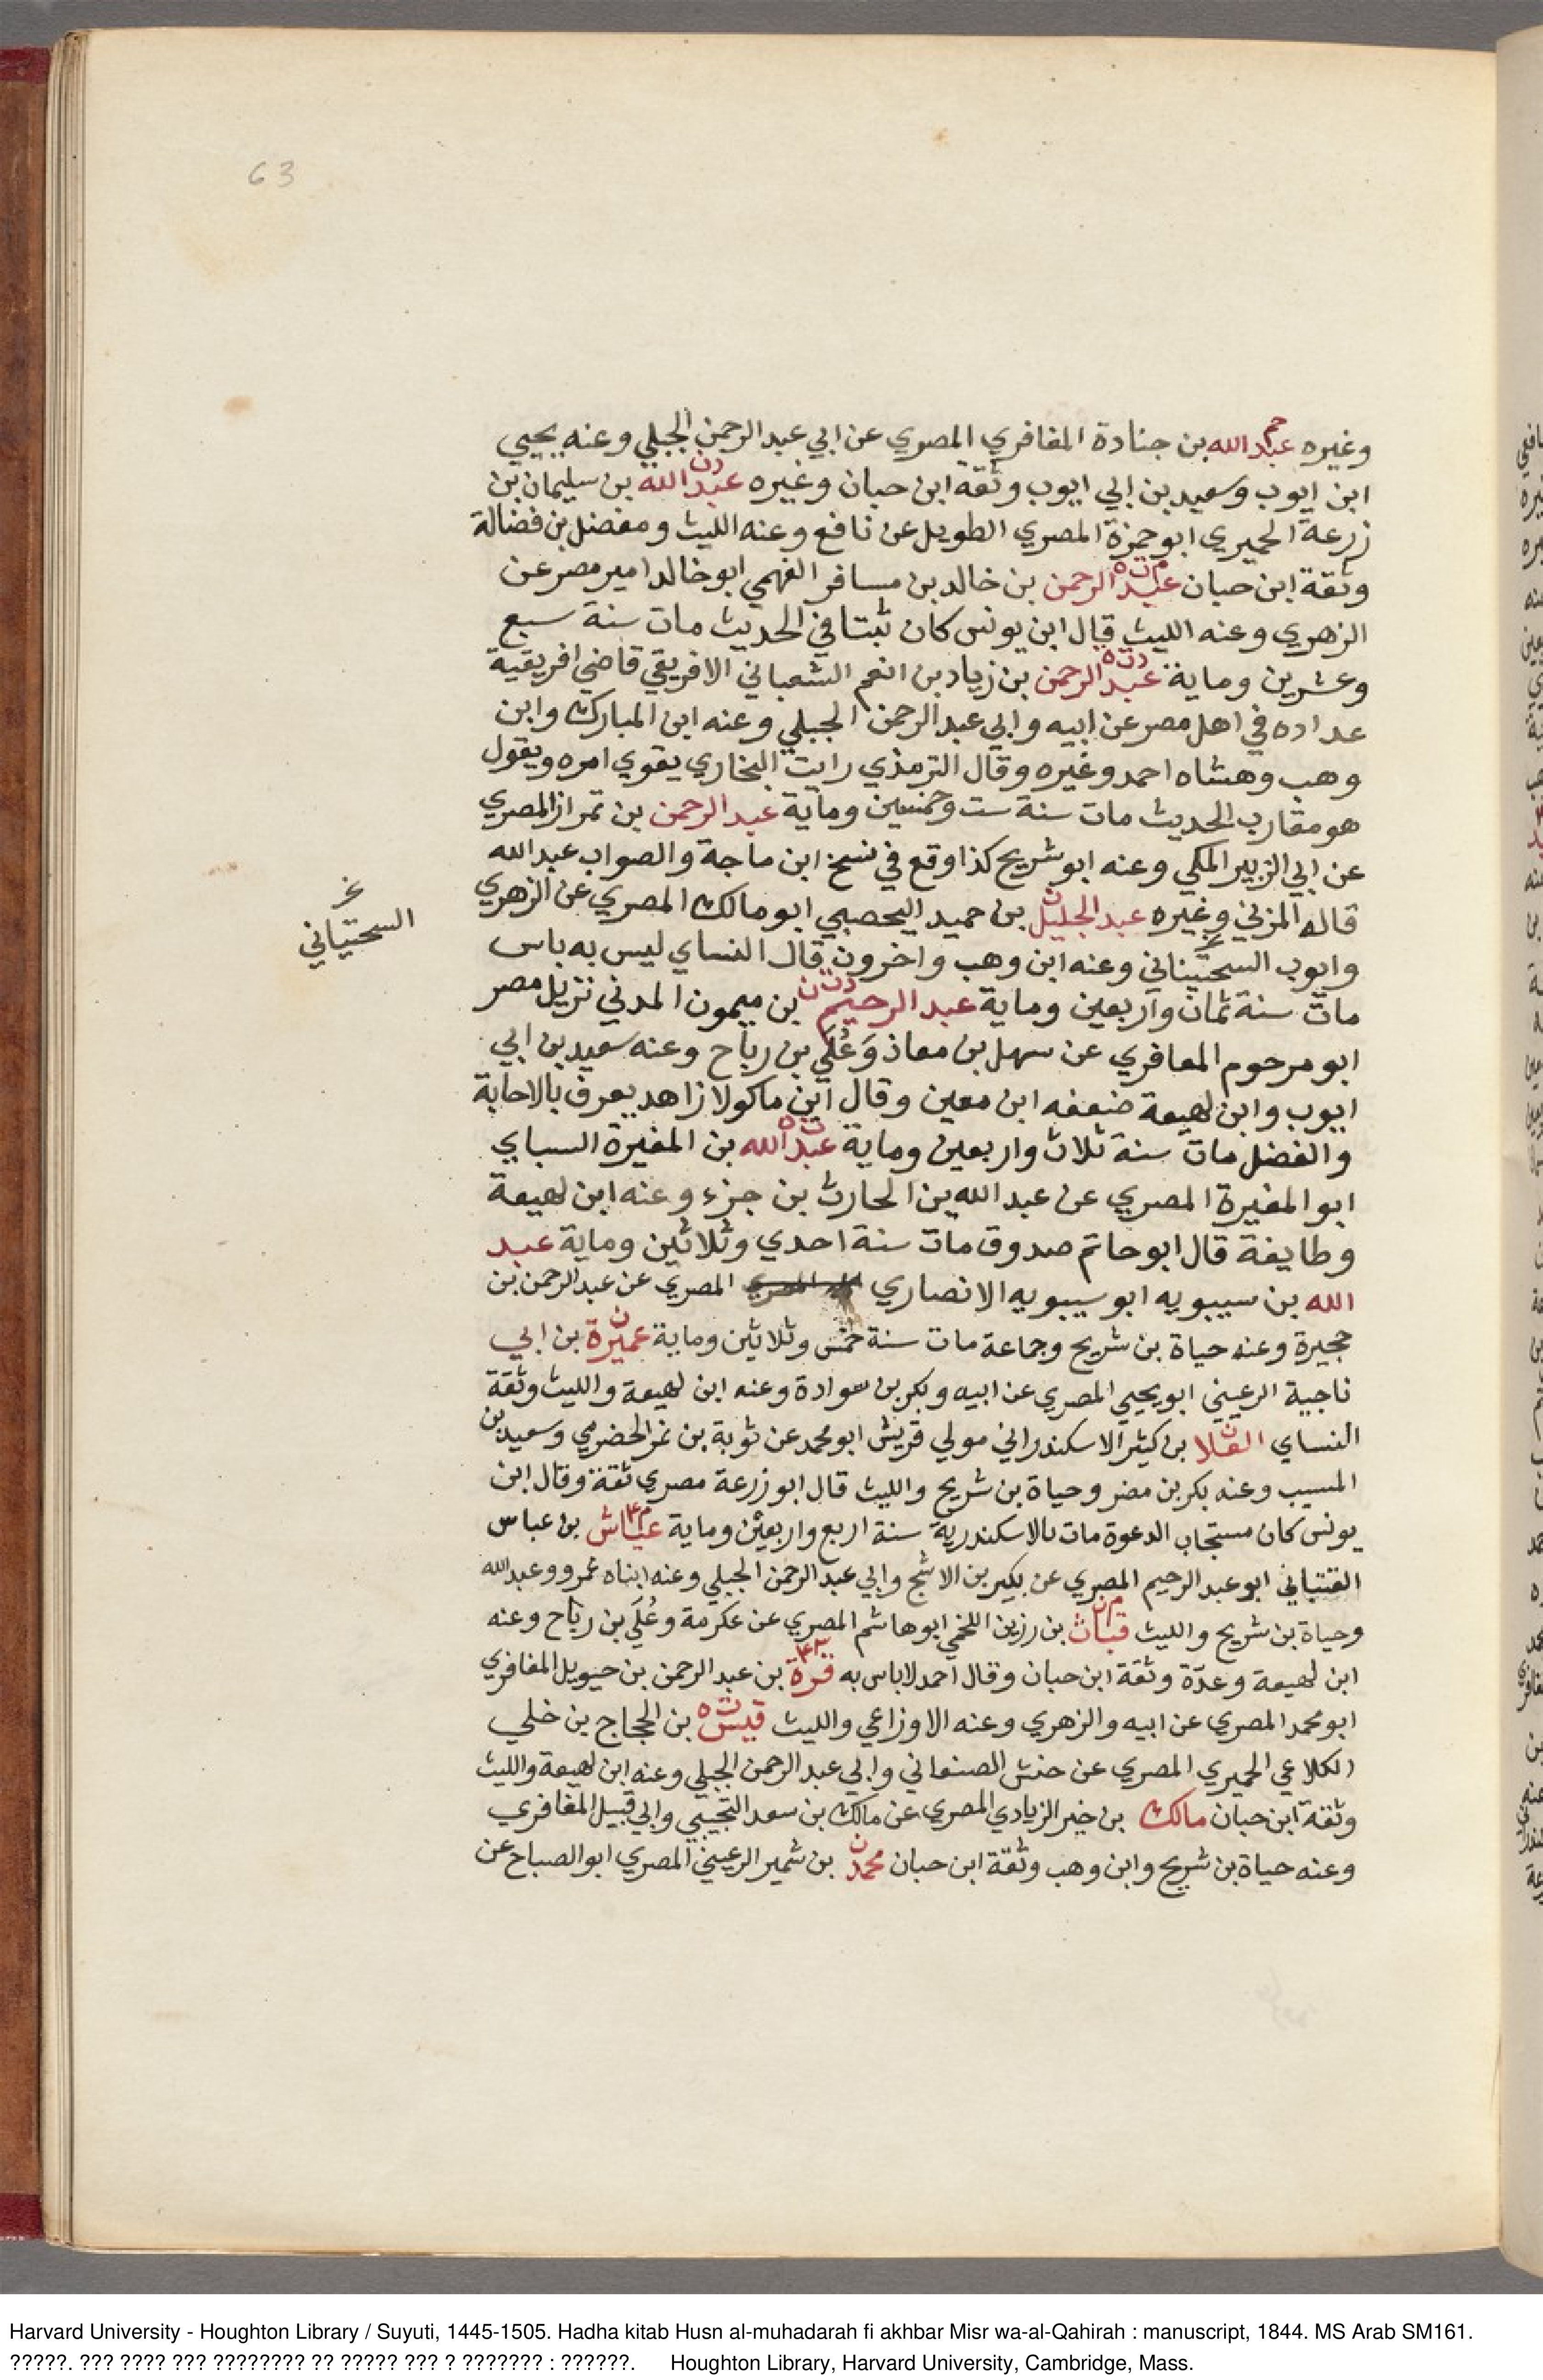 63
وغيره عبد الله بن جنادة المغافري المصري عن ابي عبد الرحمن الجبلي وعنه يحيي
ابن ايوب وسعيد بن ابي ايوب وثقة ابن حبان وغيره عبد الله بن سليمان بن
زرعة الحميري ابو حمزة المصري الطويل عن نافع وعنه الليث ومفضل بن فضالة
وثقة ابن حبان عبد الرحمن بن خالد بن مسافر الفهمي ابو خالد امير مصر عن
الزهري وعنه الليث قال ابن يونس كان ثبتا في الحديث مات سنة سبع
وعشرين وماية عبد الرحمن بن زياد بن انعم الشعباني الافريقي قاضي افريقية
عداده في اهل مصر عن ابيه وابي عبد الرحمن الجبلي وعنه ابن المبارك وابن
وهب وهشاه احمد وغيره وقال الترمذي رايت البخاري يقوي امره ويقول
هو مقارب الحديث مات سنة ست وخمسين وماية عبد الرحمن بن تمراز المصري
عن ابي الزبير المكي وعنه ابو شريح كذا وقع في نسخ ابن ماجة والصواب عبد الله
قاله المزني وغيره عبد الجليل بن حميد اليحصبي ابو مالك المصري عن الزهري
وايوب السحتيناني وعنه ابن وهب واخرون قال النساي ليس به باس
السحتياني
مات سنة ثمان واربعين وماية عبد الرحيم بن ميمون المدني نزيل مصر
ابو مرحوم المعافري عن سهل بن معاذ وعُلَي بن رباح وعنه سعيد بن ابي
ايوب وابن لهيعة ضعفه ابن معين وقال ابن ماكولا زاهد يعرف بالاجابة
والفضل مات سنة ثلاث واربعين وماية عبد الله بن المغيرة السباي
ابو المغيرة المصري عن عبد الله بن الحارث بن جزء وعنه ابن لهيعة
وطايفة قال ابو حاتم صدوق مات سنة احدي وثلاثين وماية عبد
الله بن سيبويه ابو سيبويه الانصاري المصري عن عبد الرحمن بن
حجيرة وعنه حياة بن شريح وجماعة مات سنة خمس وثلاثين وماية عميرة بن ابي
ناجية الرعيني ابو يحيي المصري عن ابيه وبكر بن سوادة وعنه ابن لهيعة والليث وثقة
النساي العلا بن كثير الاسكندراني مولي قريش ابو محمد عن ثوبة بن نمر الحضرمي وسعيد بن
المسيب وعنه بكر بن مضر وحياة بن شريح والليث قال ابو زرعة مصري ثقة وقال ابن
يونس كان مستجاب الدعوة مات بالاسكندرية سنة اربع واربعين وماية عياش بن عباس
القتباني ابو عبد الرحيم المصري عن بكير بن الاشج وابي عبد الرحمن الجبلي وعنه ابناه عمرو وعبد الله
وحياة بن شريح والليث قباث بن رزين اللخمي ابو هاشم المصري عن عكرمة وعُلَي بن رباح وعنه
ابن لهيعة وعدّة وثقة ابن حبان وقال احمد لاباس به قرة بن عبد الرحمن بن حيويل المغافري
ابو محمد المصري عن ابيه والزهري وعنه الاوزاعي والليث قيس بن الحجاج بن خلي
الكلاعي الحميري المصري عن حنش الصنعاني وابي عبد الرحمن الجبلي وعنه ابن لهيعة والليث
وثقة ابن حبان مالك بن خير الزيادي المصري عن مالك بن سعد التجيبي وابي قبيل المغافري
وعنه حياة بن شريح وابن وهب وثقة ابن حبان محمد بن شمير الرعيني المصري ابو الصباح عن
Harvard University - Houghton Library / Suyuti, 1445-1505. Hadha kitab Husn al-muhadarah fi akhbar Misr wa-al-Qahirah : manuscript, 1844. MS Arab SM161.
?????. ??? ???? ??? ???????? ?? ????? ??? ? ??????? : ??????. Houghton Library, Harvard University, Cambridge, Mass.